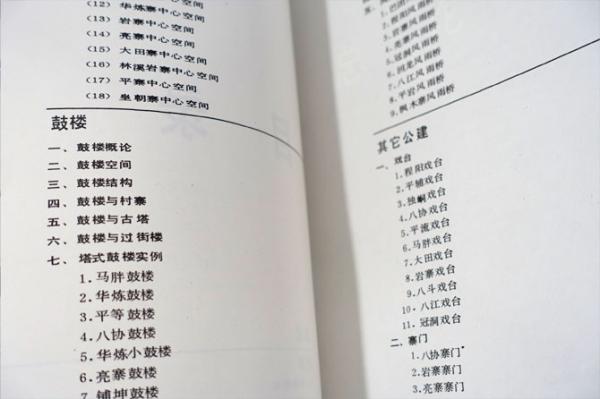 (12) 华炼寨中心空间
(13) 岩寨中心空间
(14) 亮寨中心空间
(15) 大田寨中心空间
(16) 林溪岩寨中心空间
(17) 平寨中心空间
(18) 皇朝寨中心空间
鼓楼
一、鼓楼概论
二、鼓楼空间
三、鼓楼结构
四、鼓楼与村寨
五、鼓楼与古塔
六、鼓楼与过街楼
七、塔式鼓楼实例
1.马胖鼓楼
2.华炼鼓楼
3.平等鼓楼
4.八协鼓楼
5.华炼小鼓楼
6.亮寨鼓楼
7.铺坤鼓楼
2.程阳风雨桥
3.岩寨风雨桥
4.亮寨风雨桥
5.冠洞风雨桥
6.回龙风雨桥
7.八江风雨桥
8.平岩风雨桥
9.枫木寨风雨桥
其它公建
一、戏台
1.程阳戏台
2.平辅戏台
3.独峒戏台
4.八协戏台
5.平流戏台
6.马胖戏台
7.大田戏台
8.岩寨戏台
9.八斗戏台
10.八江戏台
11.冠洞戏台
二、寨门
1.八协寨门
2.岩寨寨门
3.亮寨寨门